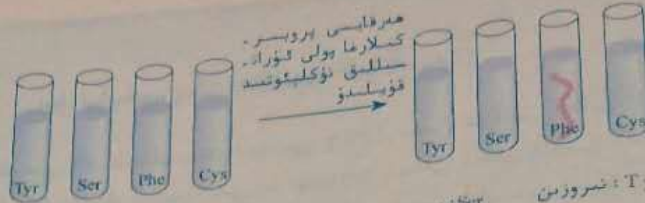 ھەرقايسى پروبىر-
كىلارغا پولى ئۇرات-
سىللىق نۇكلېئوتىد
قۇيۇلدۇ
Tyr Ser Phe Cys
Tyr Ser Phe Cys
تىروزىن :